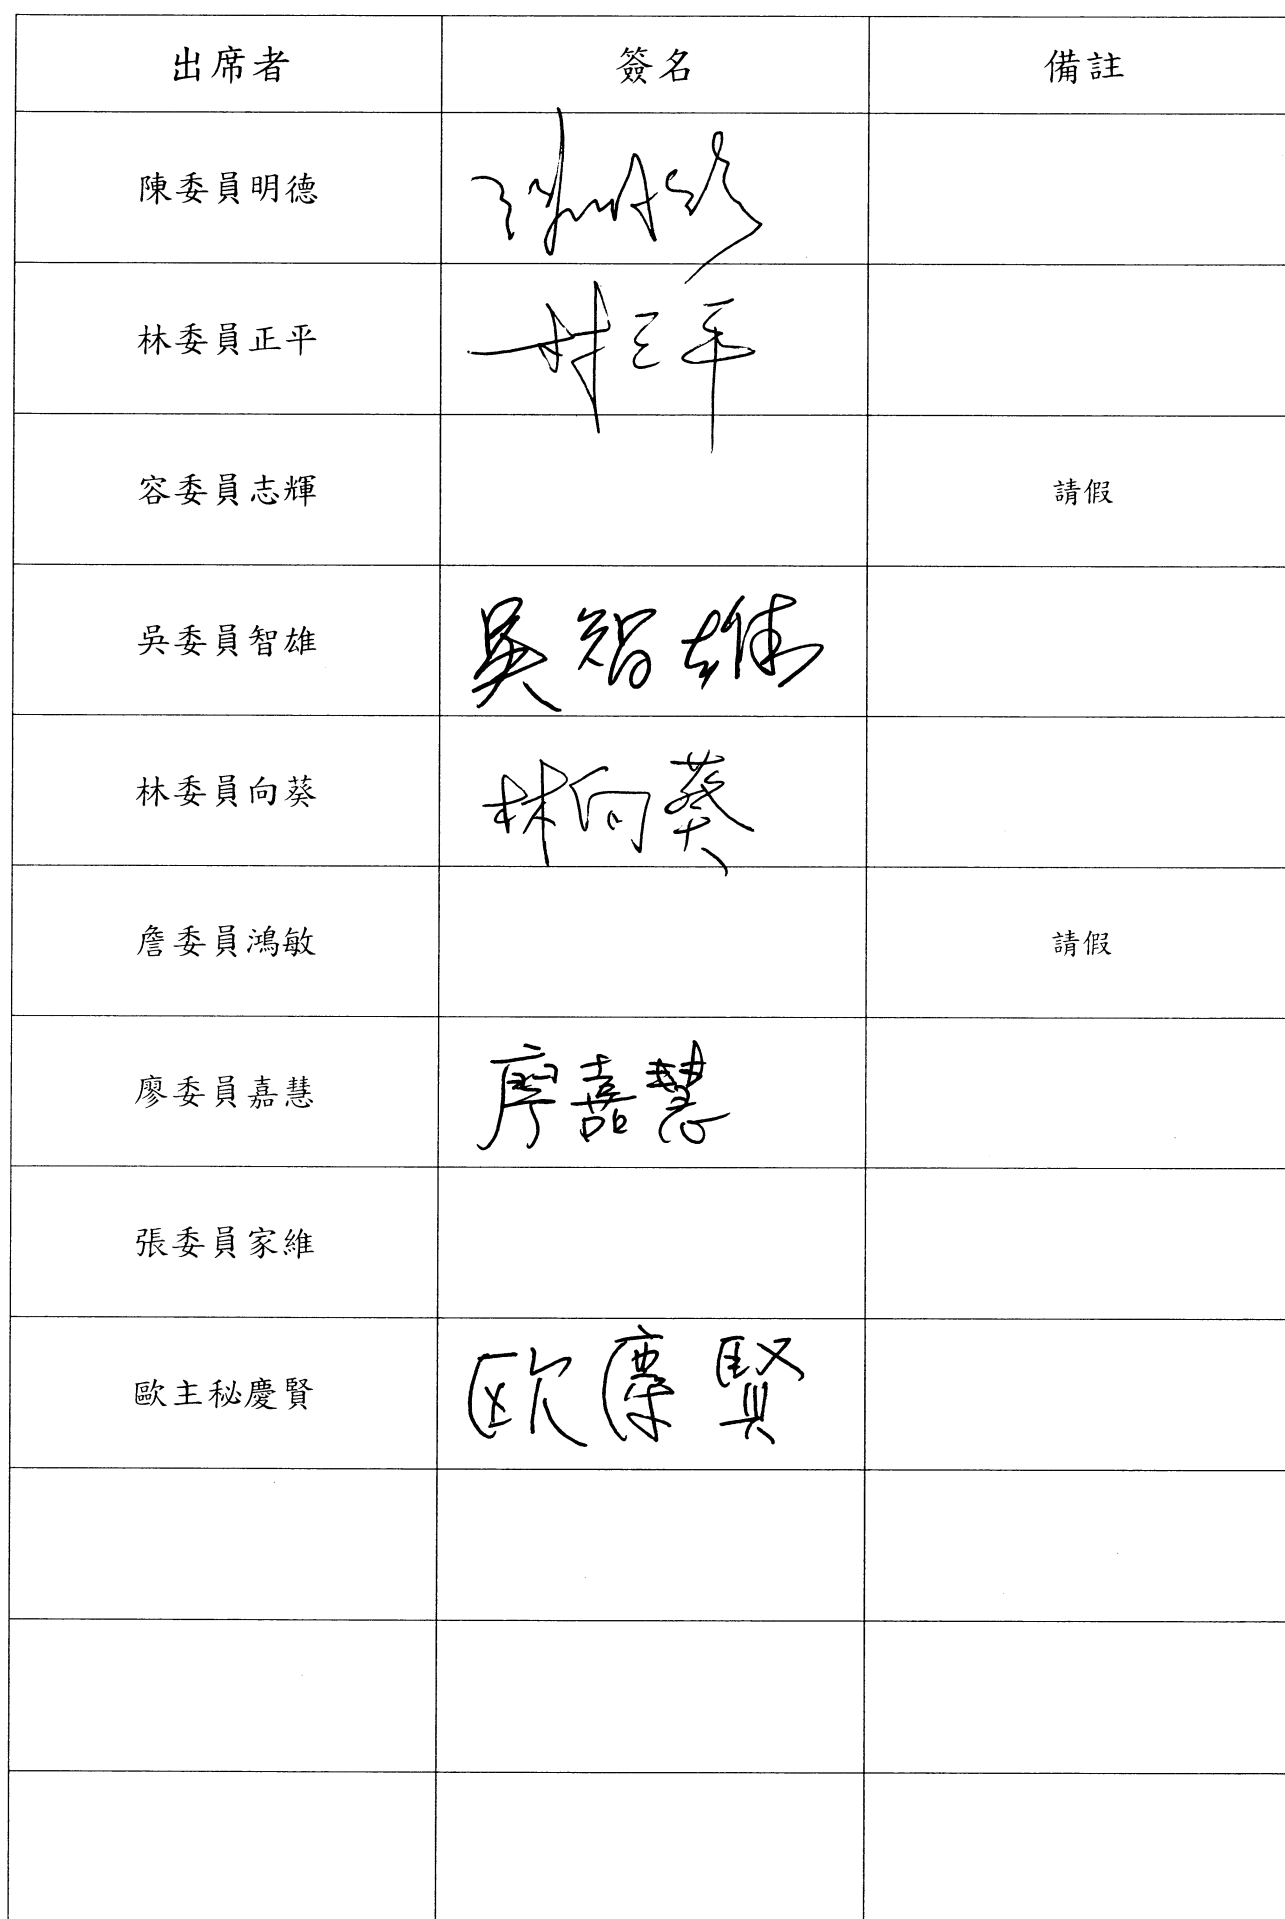 出席者 簽名 備註
陳委員明德 陳明德
林委員正平 林正平
容委員志輝 請假
吳委員智雄 吳智雄
林委員向葵 林向葵
詹委員鴻敏 請假
廖委員嘉慧 廖嘉慧
張委員家維
歐主秘慶賢 欧慶賢